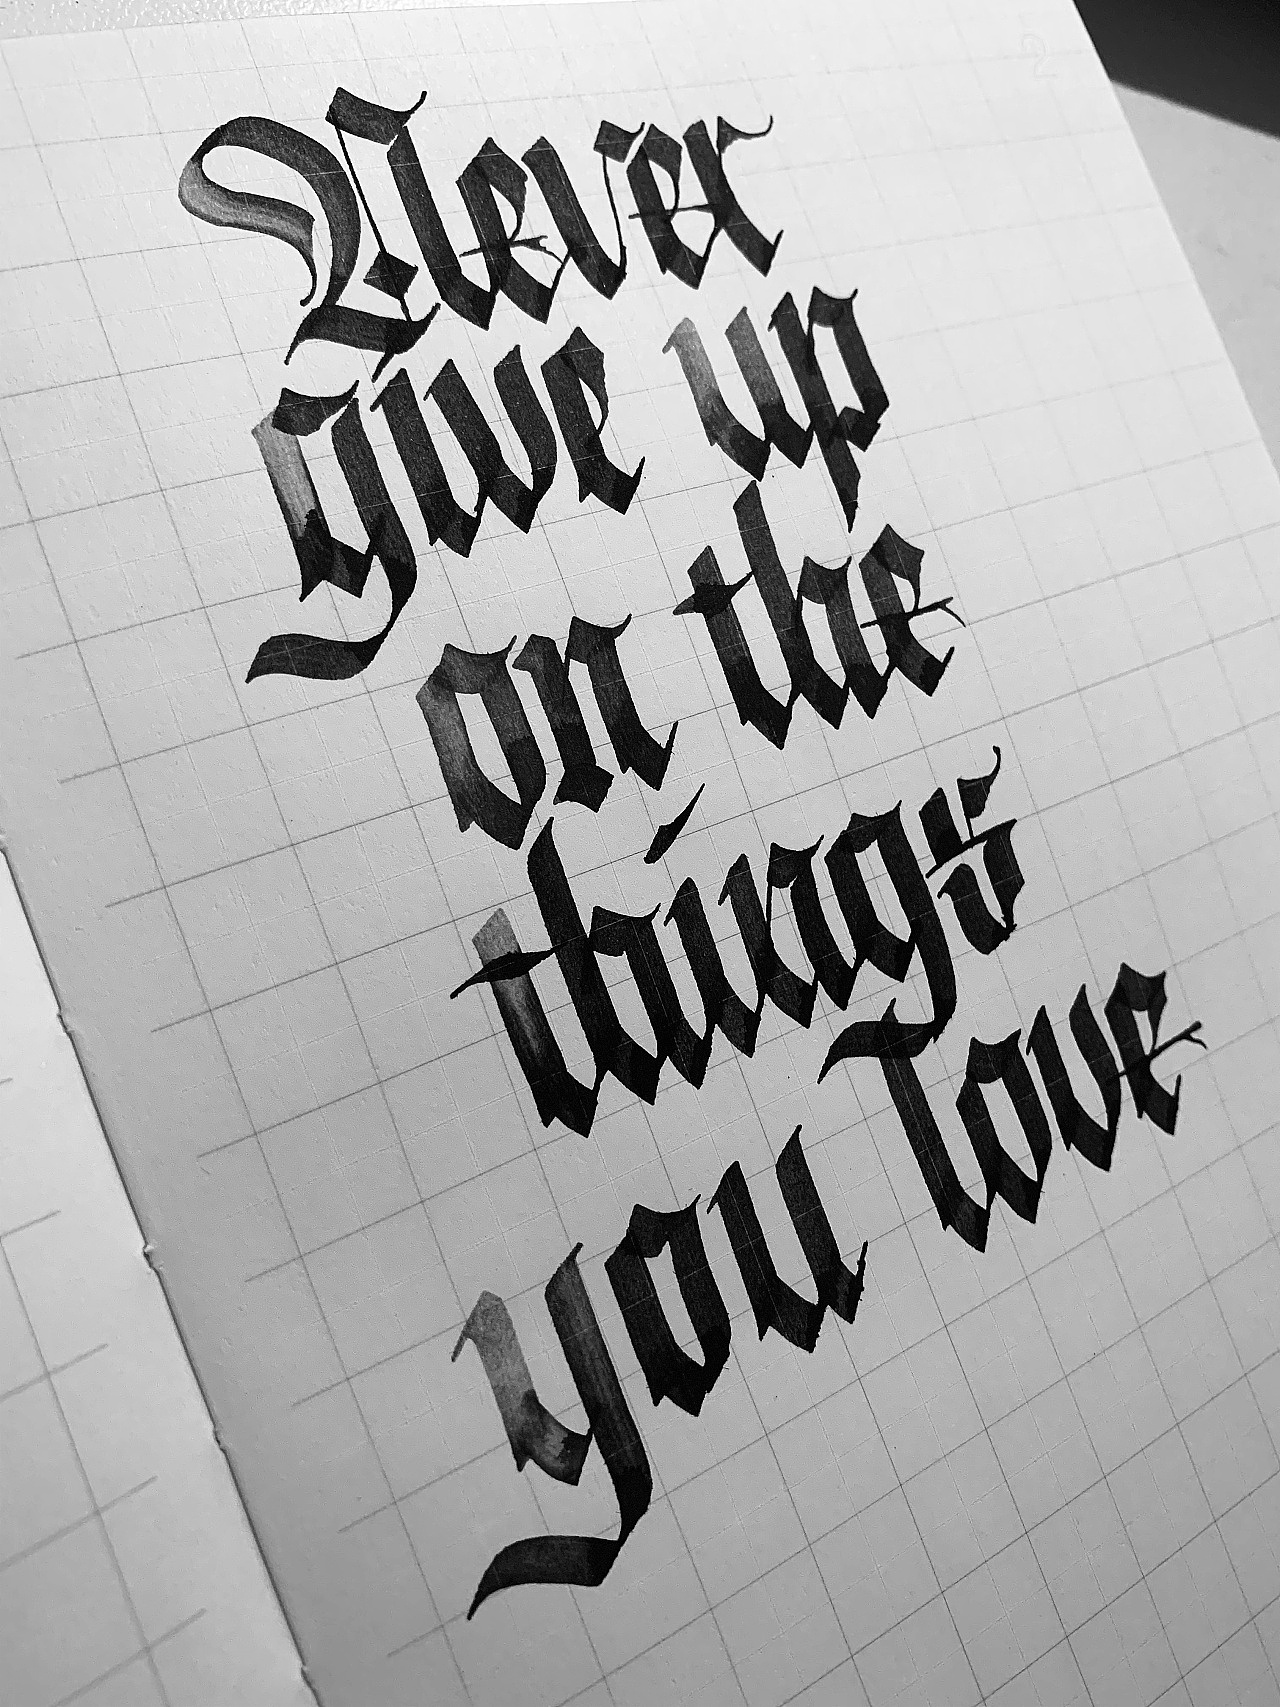 Never
give up
on the
things
you love